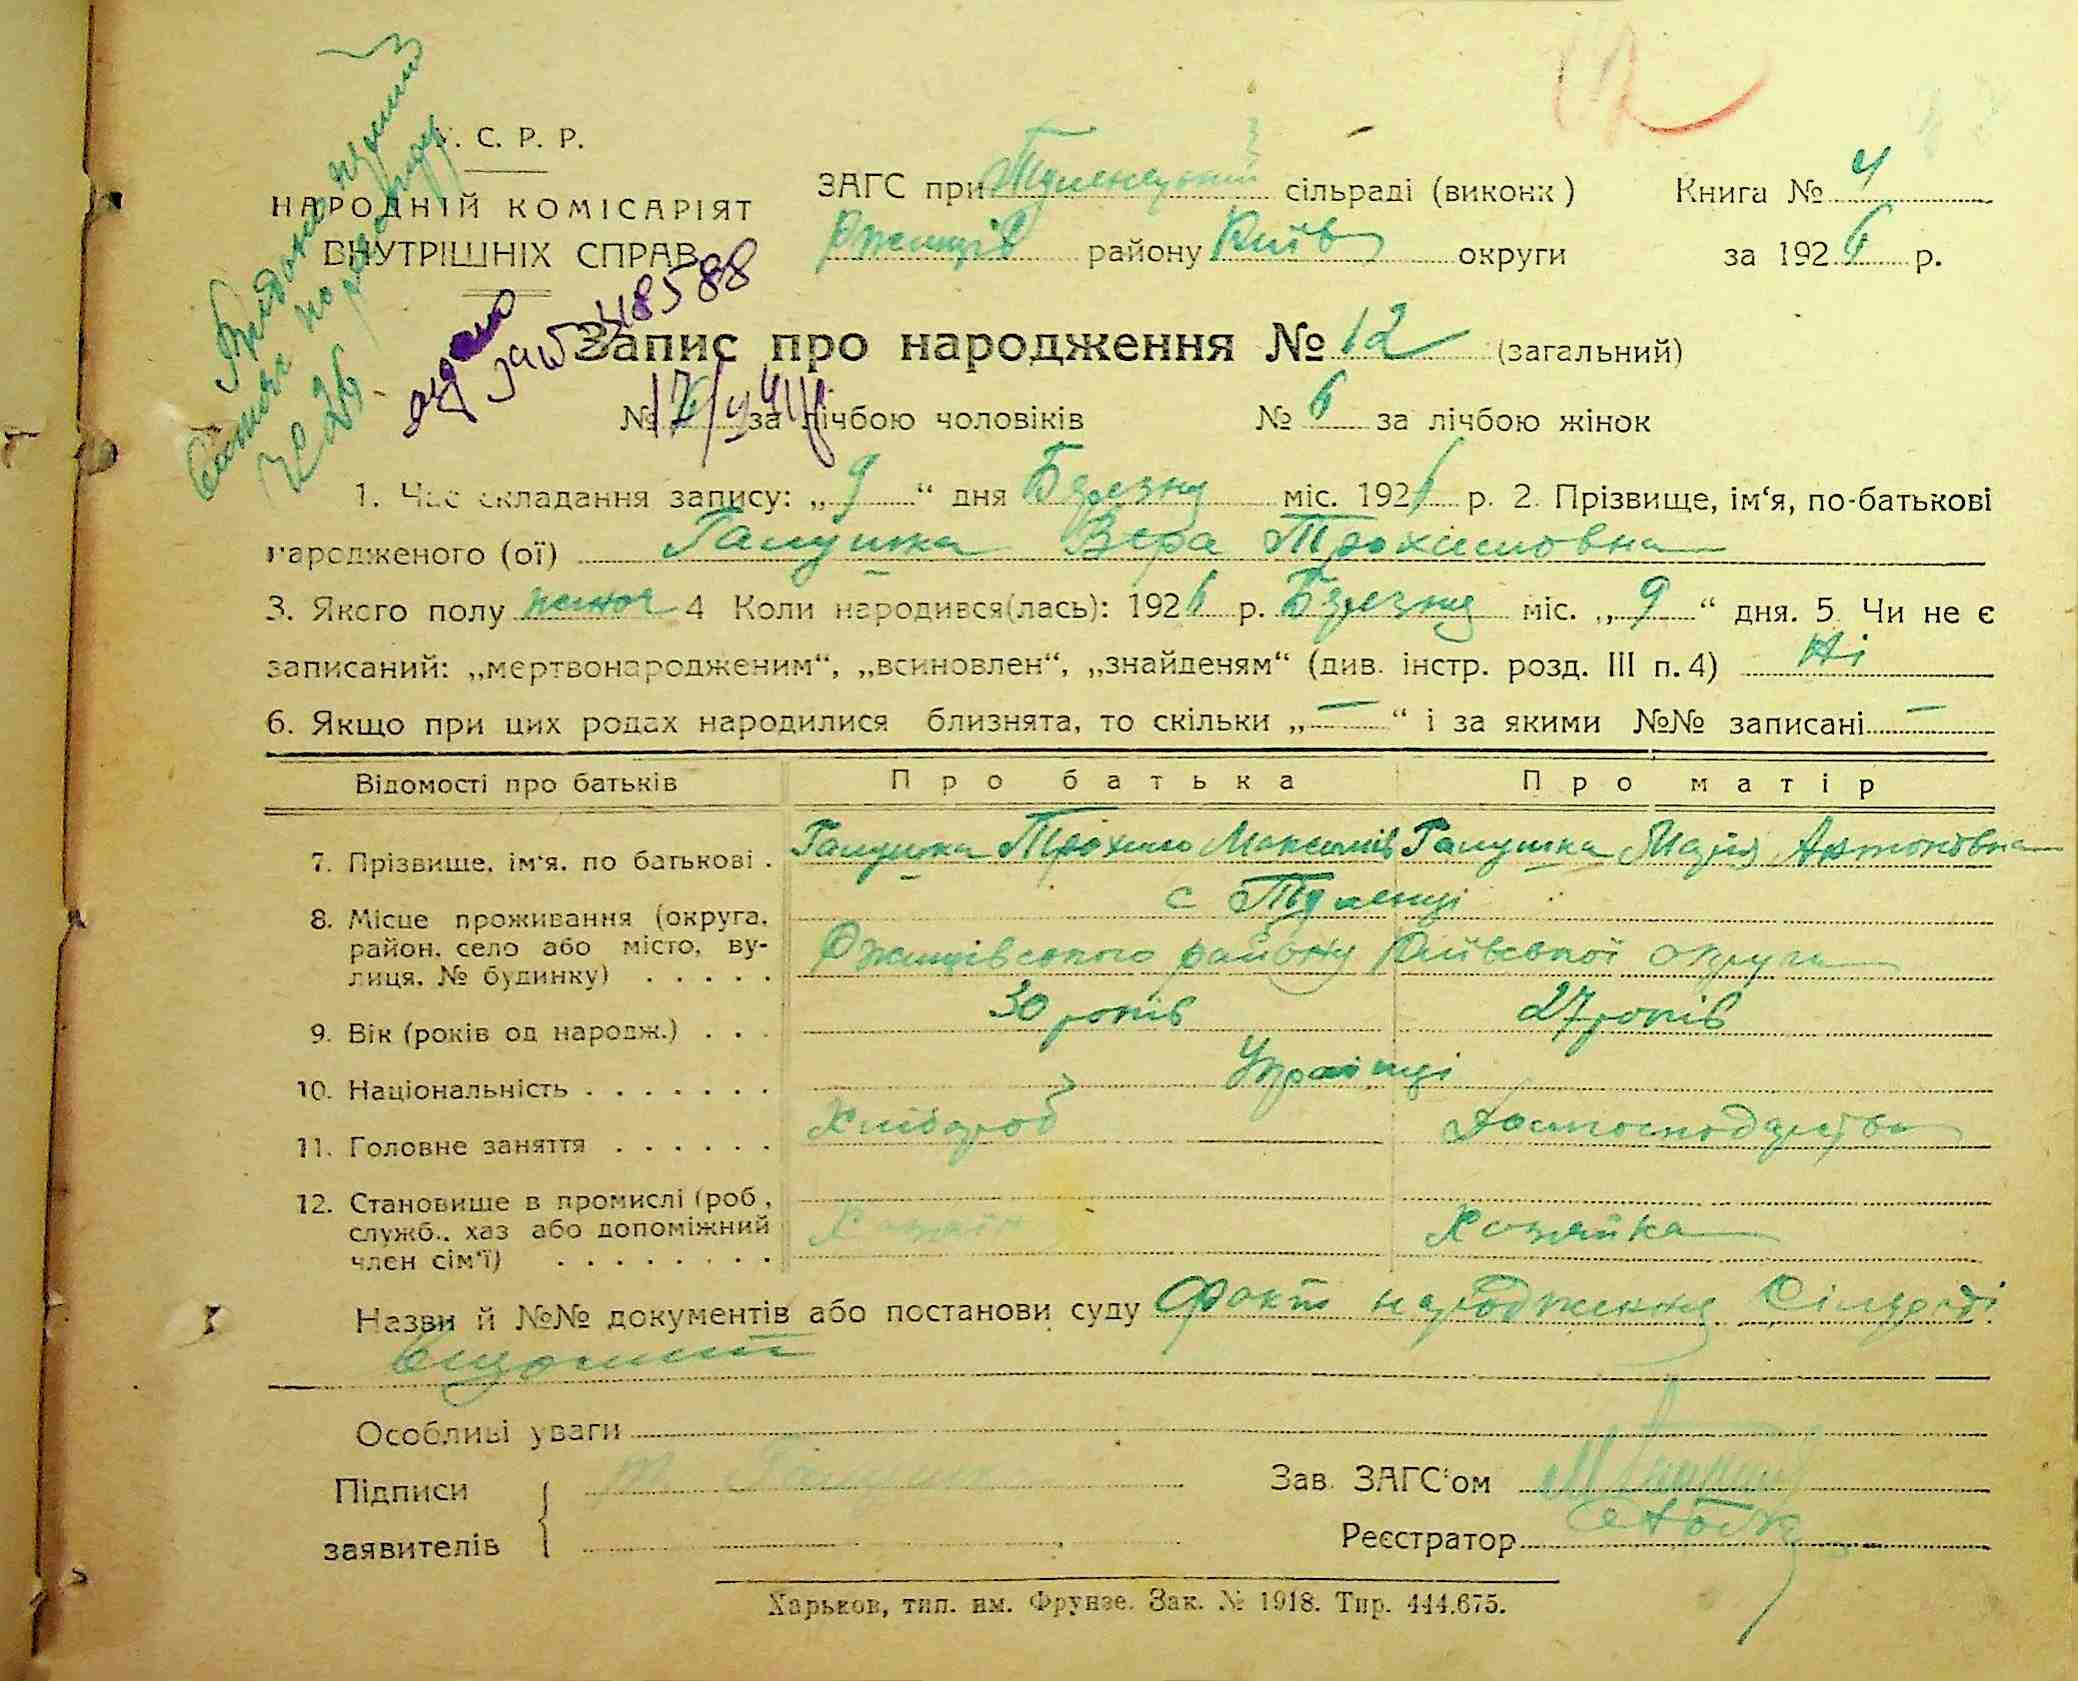 У. С. Р. Р.
НАРОДНІЙ КОМІСАРІЯТ
ВНУТРІШНІХ СПРАВ
ЗАГС при Тулинецкій сільраді (виконк)
Ржищів району Київ округи
Книга № 4
за 1926 р.
418588
17/у
Запис про народження № 12 (загальний)
№ за лічбою чоловіків № 6 за лічбою жінок
1. Час складання запису: „9“ дня Березня міс. 1926 р. 2. Прізвище, ім‘я, по-батькові
народженого (ої) Галушка Вера Трохимовна
3. Якого полу жіноч 4 Коли народився(лась): 1926 р. Березня міс. „9“ дня. 5 Чи не є
записаний: „мертвонародженим“, „всиновлен“, „знайденям“ (див. інстр. розд. III п. 4) Ні
6. Якщо при цих родах народилися близнята, то скільки „—“ і за якими №№ записані —
Відомості про батьків Про батька Про матір
7. Прізвище, ім‘я, по батькові . Галушка Трохим Максимів Галушка Марія Антоновна
8. Місце проживання (округа, с Тулинці
район, село або місто, ву- Ржищівського району Київської округи
лиця, № будинку) . . . . .
9. Вік (років од народж.) . . . 30 років 27 років
10. Національність . . . . . . . Українці
11. Головне заняття . . . . . . Хлібороб Домгосподарство
12. Становище в промислі (роб,
служб., хаз або допоміжний Хозяїн Хозяйка
член сім‘ї) . . . . . . . .
Назви й №№ документів або постанови суду Факт народження Сільраді
відомий
Особливі уваги
Підписи Галушка Зав. ЗАГС‘ом
заявителів Реєстратор
Харьков, тип. им. Фрунзе. Зак. № 1918. Тир. 444.675.